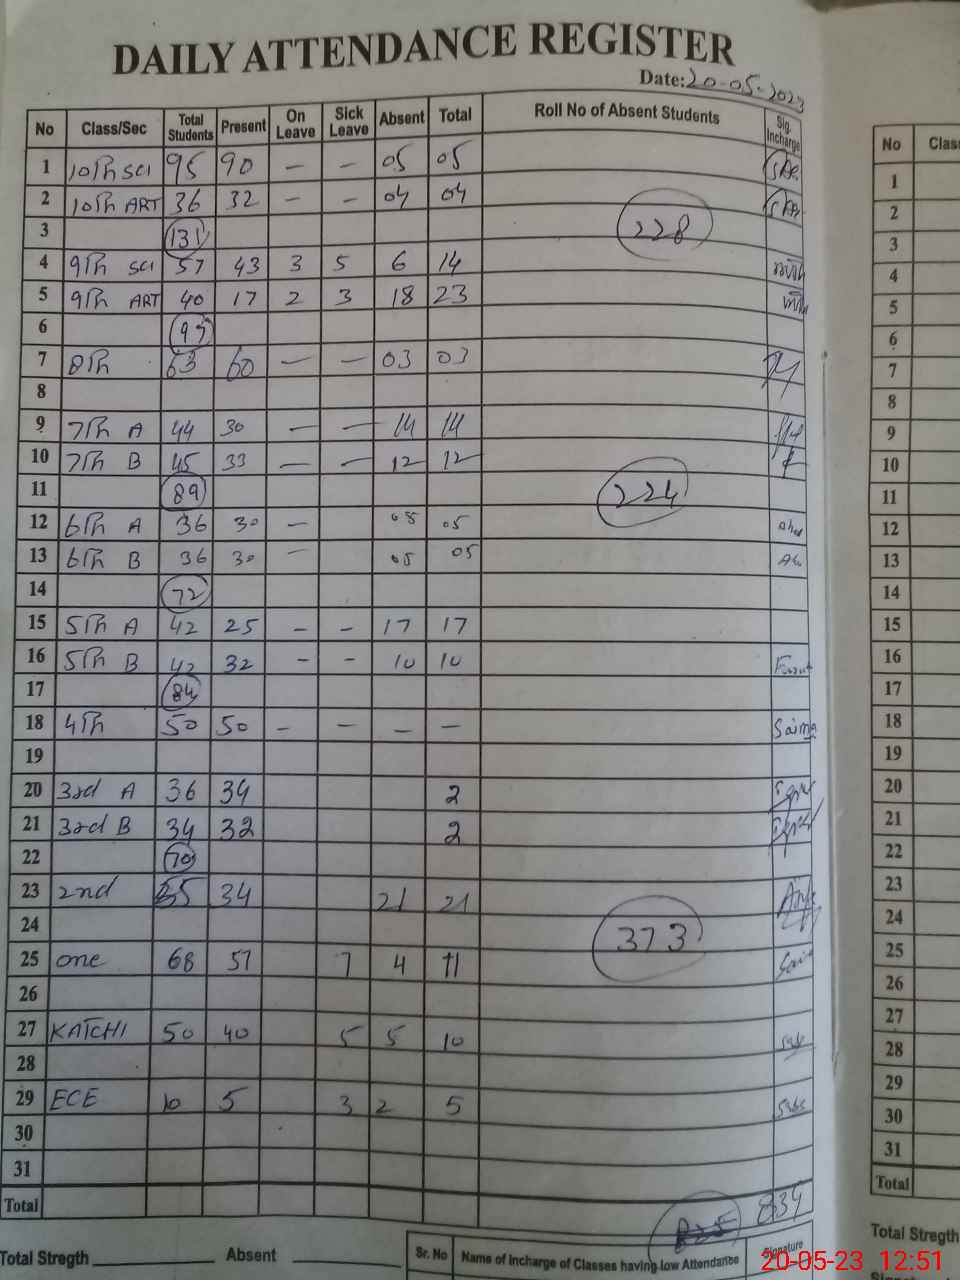 DAILY ATTENDANCE REGISTER
Date: 20-05-2023
No Class/Sec Total Students Present On Leave Sick Leave Absent Total Roll No of Absent Students Sig. Incharge
1 10th SCI 95 90 — — 05 05
2 10th ART 36 32 — — 04 04
3 131 228
4 9th SCI 57 43 3 5 6 14
5 9th ART 40 17 2 3 18 23
6 97
7 8th 63 60 — — 03 03
8
9 7th A 44 30 — — 14 14
10 7th B 45 33 — — 12 12
11 89 224
12 6th A 36 30 — 05 05
13 6th B 36 30 — 05 05
14 72
15 5th A 42 25 — — 17 17
16 5th B 42 32 — — 10 10
17 84
18 4th 50 50 — — — — Saima
19
20 3rd A 36 34 2
21 3rd B 34 32 2
22 70
23 2nd 55 34 21 21
24 373
25 one 68 57 7 4 11
26
27 KATCHI 50 40 5 5 10
28
29 ECE 10 5 3 2 5
30
31
Total
834
Total Stregth Absent
Sr. No Name of Incharge of Classes having low Attendance Signature
No Class
1
2
3
4
5
6
7
8
9
10
11
12
13
14
15
16
17
18
19
20
21
22
23
24
25
26
27
28
29
30
31
Total
Total Stregth
20-05-23 12:51